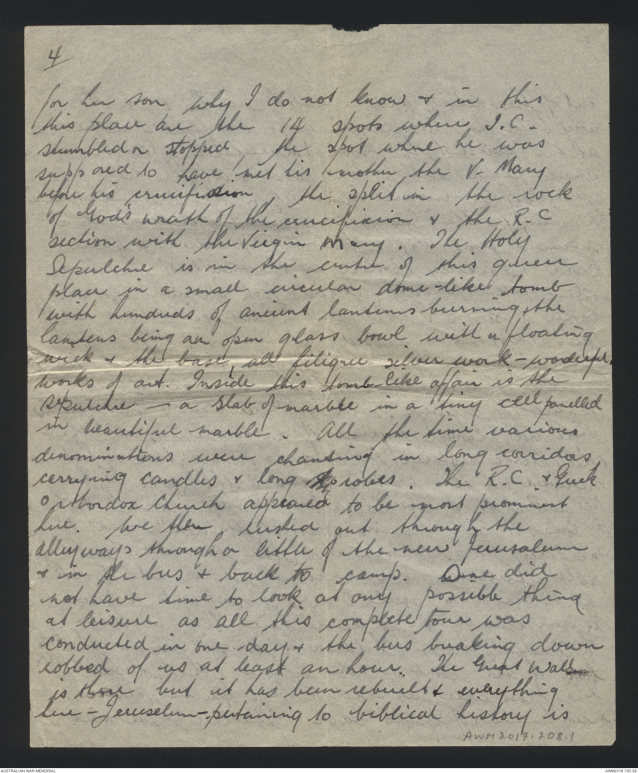 4
for her son why I do not know & in this
this place are the 14 spots where J.C.
stumbled or stopped, the spot where he was
supposed to have met his mother the V. Mary
before his crucifixion, the split in the rock
of God's wrath of the crucifixion & the R.C
section with the Virgin Mary. The Holy
Sepulchre is in the centre of this queer
place in a small circular dome-like tomb
with hundreds of ancient lanterns burning, the
lanterns being an open glass bowl with a floating
wick & the base all filigree silver work - wonderful
works of art. Inside this tomb-like affair is the
sepulchre - a slab of marble in a tiny cell panelled
in beautiful marble. All the time various
denominations were chanting in long corridors
carrying candles & long robes. The R.C. & Greek
Orthordox Church appeared to be most prominent
here. We then rushed out through the
alleyways through a little of the new Jerusalem
& in the bus & back to camp. One did
not have time to look at any possible thing
at leisure as all this complete tour was
conducted in one day & the bus breaking down
robbed of us at least an hour. The Great Wall
is there but it has been rebuilt & everything
here - Jeruselem - pertaining to biblical history is
AWM2017.208.1
AUSTRALIAN WAR MEMORIAL